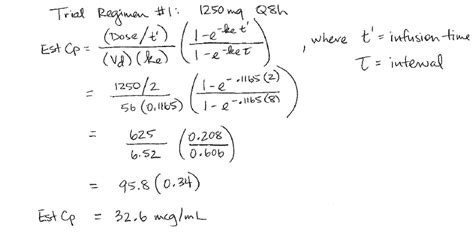 Trial Regimen #1: 1250mg Q8h
Est Cp = (Dose/t') / (Vd)(ke) ( 1-e^-ke t' / 1-e^-ke τ ) , where t' = infusion time
τ = interval
= 1250/2 / 56(0.1165) ( 1-e^-.1165(2) / 1-e^-.1165(8) )
= 625 / 6.52 ( 0.208 / 0.606 )
= 95.8 (0.34)
Est Cp = 32.6 mcg/mL